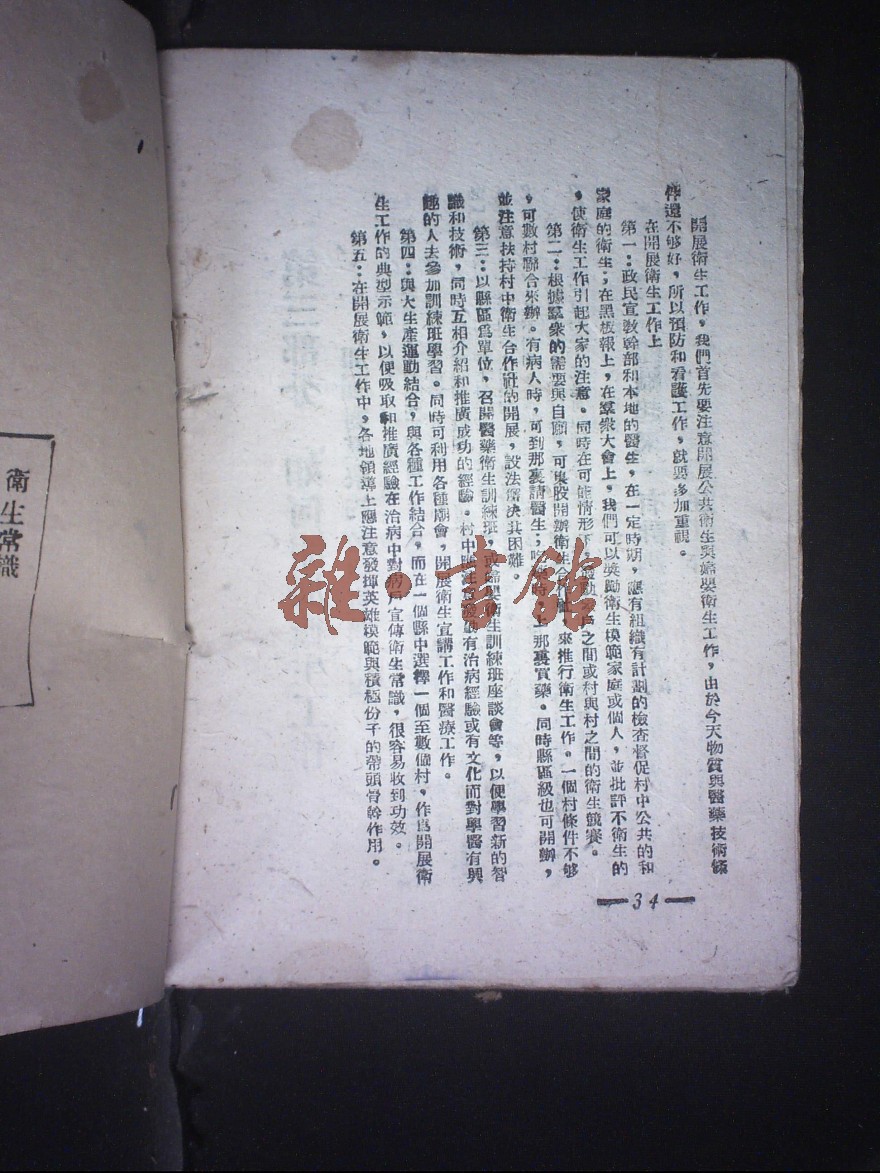 開展衛生工作，我們首先要注意開展公共衛生與婦嬰衛生工作，由於今天物質與醫藥技術條
件還不够好，所以預防和看護工作，就要多加重視。
在開展衛生工作上
第一：政民宣教幹部和本地的醫生，在一定時期，應有組織有計劃的檢查督促村中公共的和
家庭的衛生；在黑板報上，在羣衆大會上，我們可以獎勵衛生模範家庭或個人，並批評不衛生的
，使衛生工作引起大家的注意。同時在可能情形下 之間或村與村之間的衛生競賽。
第二：根據羣衆的需要與自願，可集股開辦衛生 來推行衛生工作。一個村條件不够
，可數村聯合來辦。有病人時，可到那裏請醫生； 那裏買藥。同時縣區級也可開辦，
並注意扶持村中衛生合作社的開展，設法解決其困難。
第三：以縣區爲單位，召開醫藥衛生訓練班，或婦嬰衛生訓練班座談會等，以便學習新的智
識和技術，同時互相介紹和推廣成功的經驗。村中 有治病經驗或有文化而對學醫有興
趣的人去參加訓練班學習。同時可利用各種廟會，開展衛生宣講工作和醫療工作。
第四：與大生產運動結合，與各種工作結合，而在一個縣中選擇一個至數個村，作爲開展衛
生工作的典型示範，以便吸取和推廣經驗在治病中對病戶宣傳衛生常識，很容易收到功效。
第五：在開展衛生工作中，各地領導上應注意發揮英雄模範與積極份子的帶頭骨幹作用。
—34—
衛生常識
雜·書館